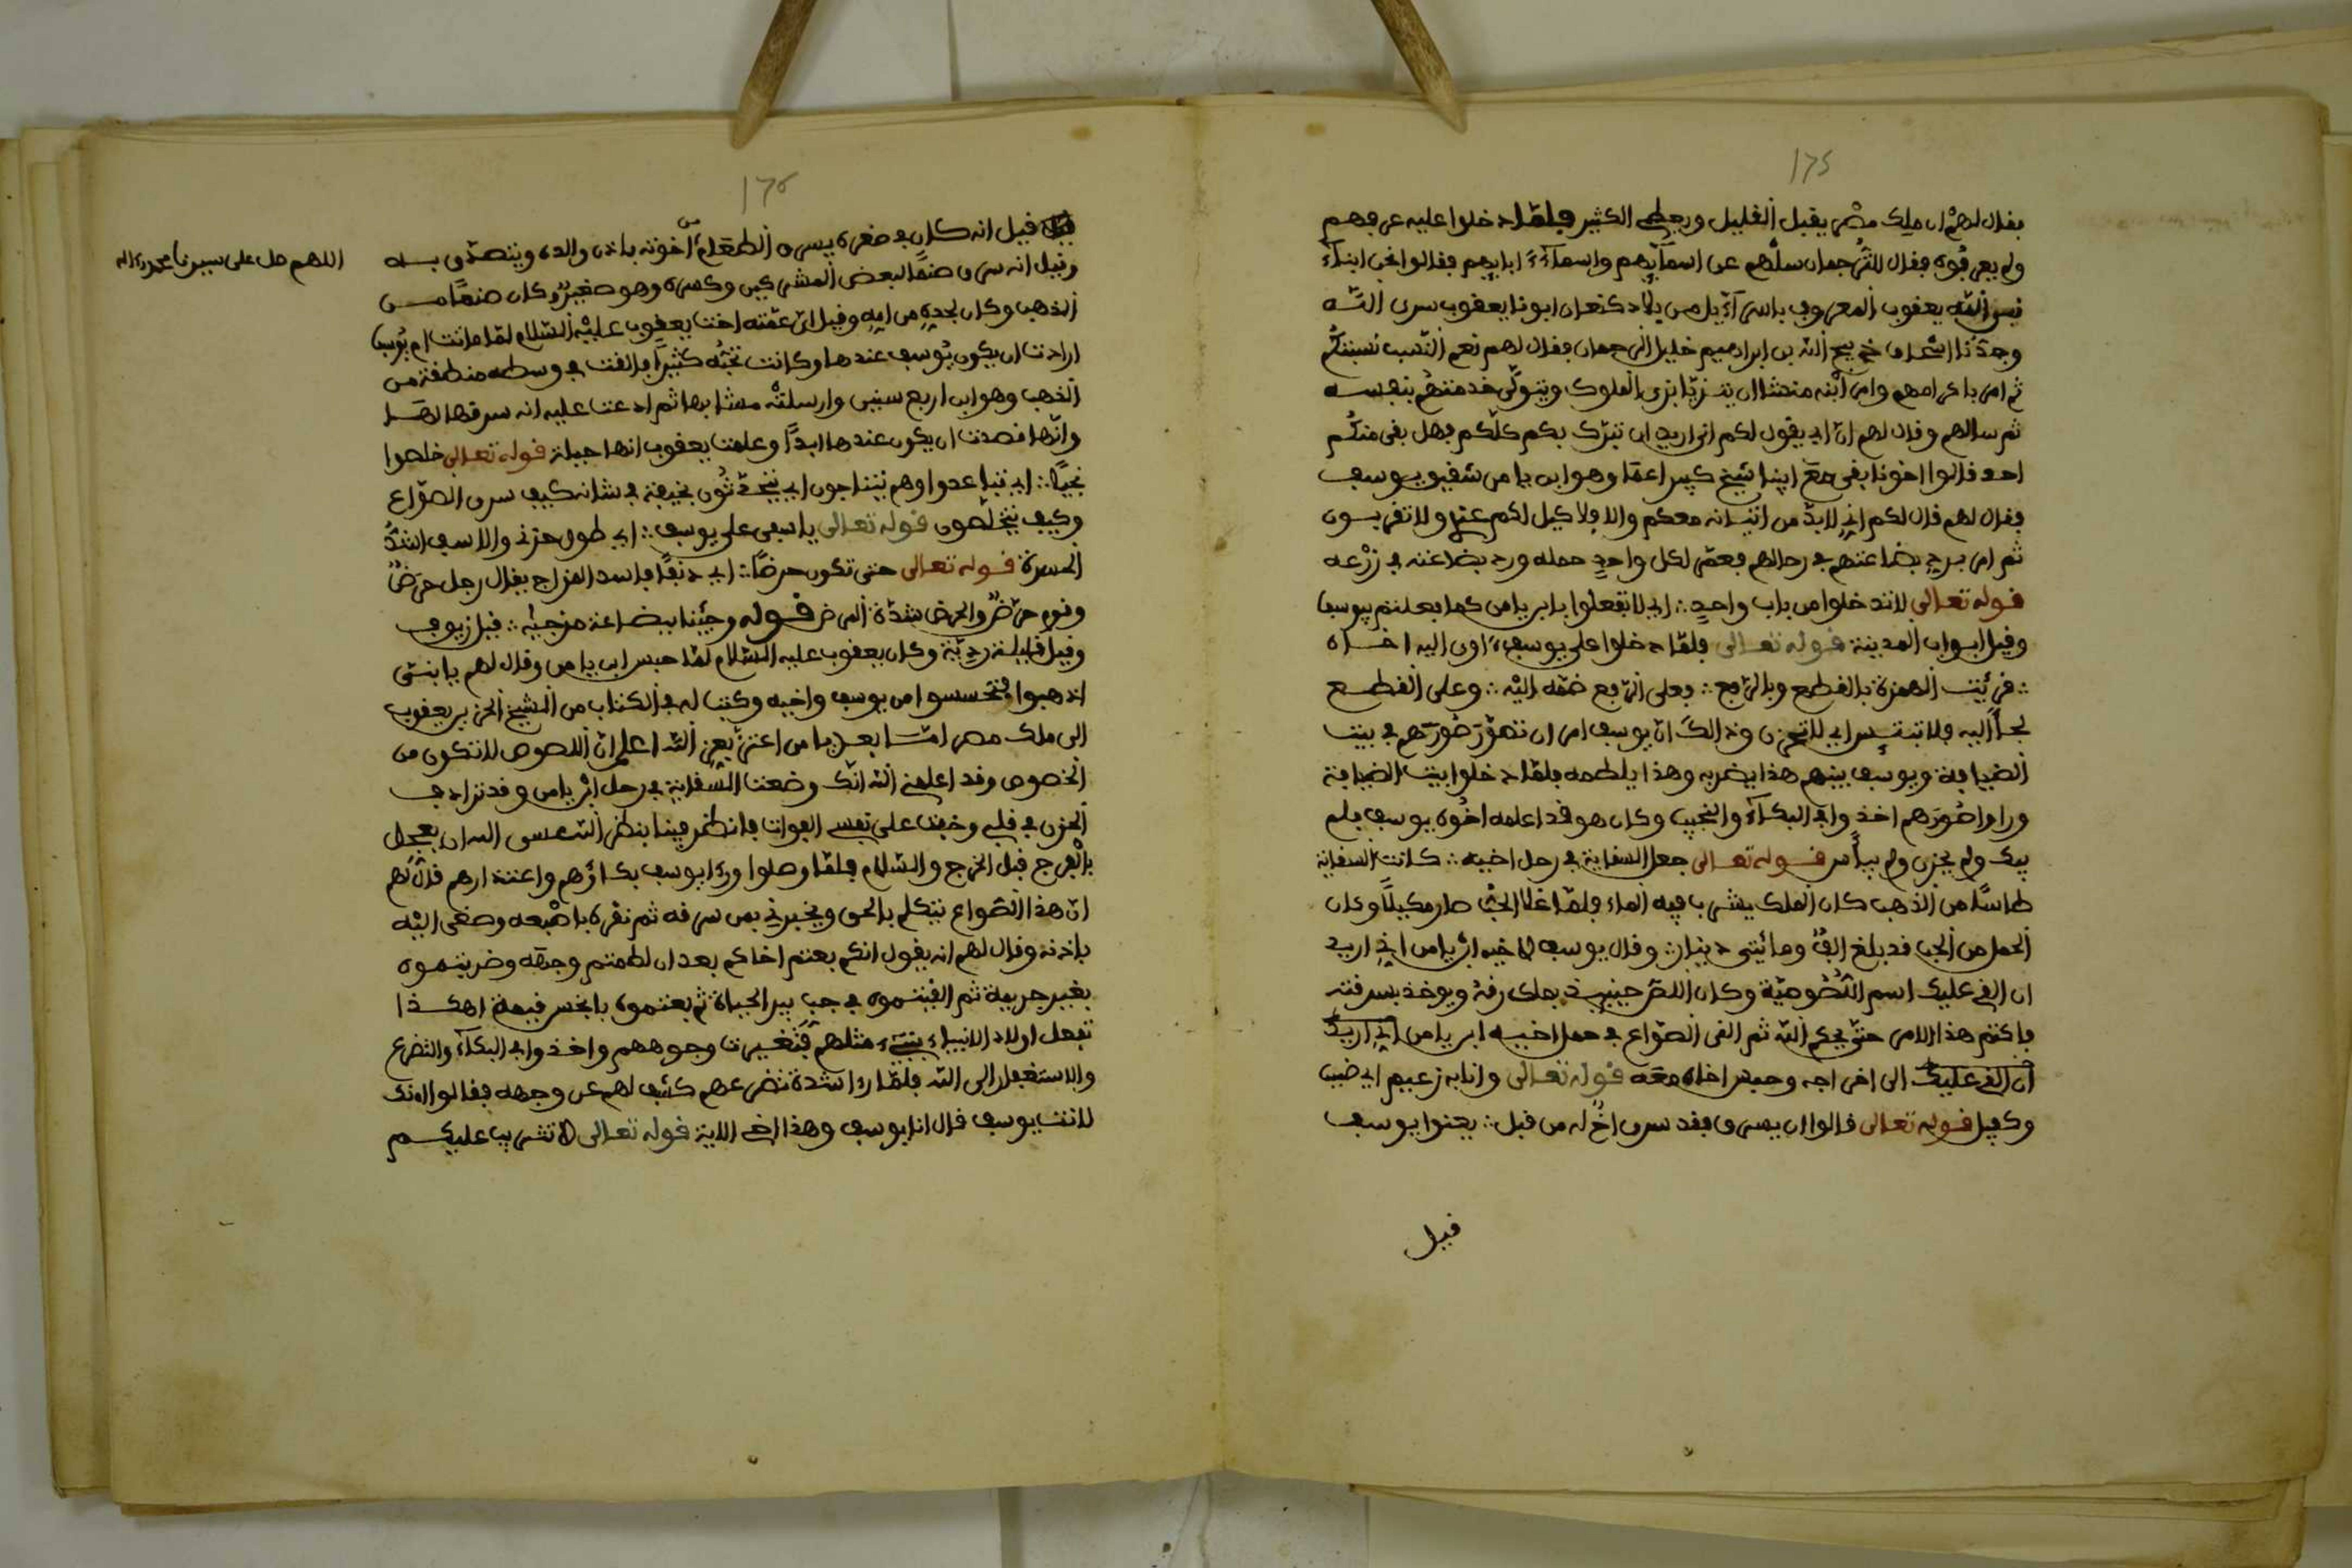 175
فقال لهم ان ملك مصر يقبل القليل ويعطى الكثير فلمّا دخلوا عليه عرفهم
ولم يعرفوه فقال للترجمان سلهم عن اسمآيهم واسمآء ابايهم فقالوا نحن ابنآء
نبى الله يعقوب المعروف باسرآئيل من بلاد كنعان ابونا يعقوب سرى الله
وجدّنا اسحاق ذبيح الله بن ابراهيم خليل الرحمان فقال لهم نعم النسب نسبتكم
ثم امر باكرامهم وامر ابنه منشا ان يتزيّا بزى الملوك ويتولّى خدمتهم بنفسه
ثم سالهم وقال لهم انّ ابى يقول لكم انى اريد ان تبرّك بكم كلّكم فهل بقى منكم
احد قالوا اخونا بقى مع ابينا شيخ كبير اعما وهو ابن يامن شقيق يوسف
فقال لهم قال لكم انى لابدّ من اتيانه معكم والا فلا كيل لكم عندى ولا تقربون
ثم امر برد بضاعتهم فى رحالهم فعمّر لكل واحد حمله ورد بضاعته فى زرعه
قوله تعالى لا تدخلوا من باب واحد ∴ اى لا تفعلوا بابن يامن كما فعلتم بيوسف
وقيل ابواب المدينة قوله تعالى فلمّا دخلوا على يوسف ءاوى اليه اخاه
∴ قرئت الهمزة بالقطع وبالرفع ∴ فعلى الرفع ضمّه اليه ∴ وعلى القطع
لجأ اليه فلا تبتيس اى لا تحزن وذالك انّ يوسف امر ان تصوّر صورهم فى بيت
الضيافة ويوسف بينهم هذا يضربه وهذا يلطمه فلمّا دخلوا بيت الضيافة
وراوا صورهم اخذوا فى البكآء والنحيب وكان هو قد اعلمه اخوه يوسف فلم
يبك ولم يحزن ولم ييأس قوله تعالى جعل السقاية فى رحل اخيه ∴ كانت السقاية
طاسًا من الذهب كان الملك يشرب فيه الماء فلمّا غلا الحبّ صار مكيلًا وكان
الحمل من الحب قد بلغ الفٌ ومائتى دينار ∴ وقال يوسف لاخيه ابن يامن انى اريد
ان القى عليك اسم اللّصوصيّة وكان اللصّ حينيذ يملك رقه ويوخذ بسرقته
فاكتم هذا الامر حتى يحكم الله ثم القى الصّواع فى حمل اخيه ابن يامن انى اريد
ان القى عليك الى اخراجه وحبس اخاه معه قوله تعالى وانا به زعيم اى ضمين
وكفيل قوله تعالى قالوا ان يسرق فقد سرق اخٌ له من قبل ∴ يعنوا يوسف
قيل
176
قيل انه كان فى صغره يسرق الطعام من اخوته باذن والده ويتصدّق به
وقيل انه سرق صنمًا لبعض المشركين وكسره وهو صغيرٌ وكان صنمًا من
الذهب وكان لجدهِ من امه وقيل انّ عمّته اخت يعقوب عليه السّلام لمّا ماتت ام يوسف
ارادت ان يكون يوسف عندها وكانت تحبّه كثيرًا فالقت فى وسطه منطقة من
الذهب وهو ابن اربع سنين وارسلتْه مشا بها ثم ادعت عليه انه سرقها لها
وانّها قصدت ان يكون عندها ابدًا وعلمت يعقوب انها حيلة قوله تعالى خلصوا
نجيًّا ∴ اى تباعدوا وهم يتناجون اى يتحدّثون بخيفة فى شانه كيف سرق الصّواع
وكيف يتخلّصون قوله تعالى ياسفى على يوسف ∴ اى طول حزنى والاسف اشدُّ
الحسرة قوله تعالى حتى تكون حرضًا ∴ اى دنفًا فاسد المزاج يقال رجل حرضٌ
وقوم حرضٌ والحرض شدّة المرض قوله وجئنا ببضاعة مزجيه ∴ قيل زيوف
وقيل قليلة رديّة وكان يعقوب عليه السّلام لمّا حبس ابن يامن وقال لهم يا بنىّ
اذهبوا فتحسسوا من يوسف واخيه وكتب له فى الكتاب من الشيخ الحزين يعقوب
الى ملك مصر امّا بعد يا من اعتزّ بعز الله اعلم انّ اللصوص لا تكون من
الخصوص وقد اعلمنى الله انّك وضعت السّقاية فى رحل ابن يامن وقد تزادف
الحزن فى قلبى وخفت على نفسى الفوات فانظر فينا بنظر الله عسى الله ان يعجل
بالفرج قبل الخرج والسّلام فلمّا وصلوا وراء يوسف بكاؤهم واعتذارهم قال لهم
انّ هذا الصّواع يتكلم بالحق ويخبرنى بمن سرقه ثم نقره باصبعه وصغى اليه
باذنه وقال لهم انه يقول انكم بعتم اخاكم بعد ان لطمتم وجهه وضربتموه
بغير جريمة ثم القيتموه فى جب بير الحياة ثم بعتموه بابخس قيمة اهكذا
تفعل اولاد الانبياء بنبىّ مثلهم فتغيرت وجوههم واخذوا فى البكآء والتضرع
والاستغفار الى الله فلمّا راء شدة تضرعهم كشف لهم عن وجهه فقالوا اءنك
لانت يوسف قال انا يوسف وهذا اخى الاية قوله تعالى لا تثريب عليكم
اللهم صل على سيدنا محمد وءاله